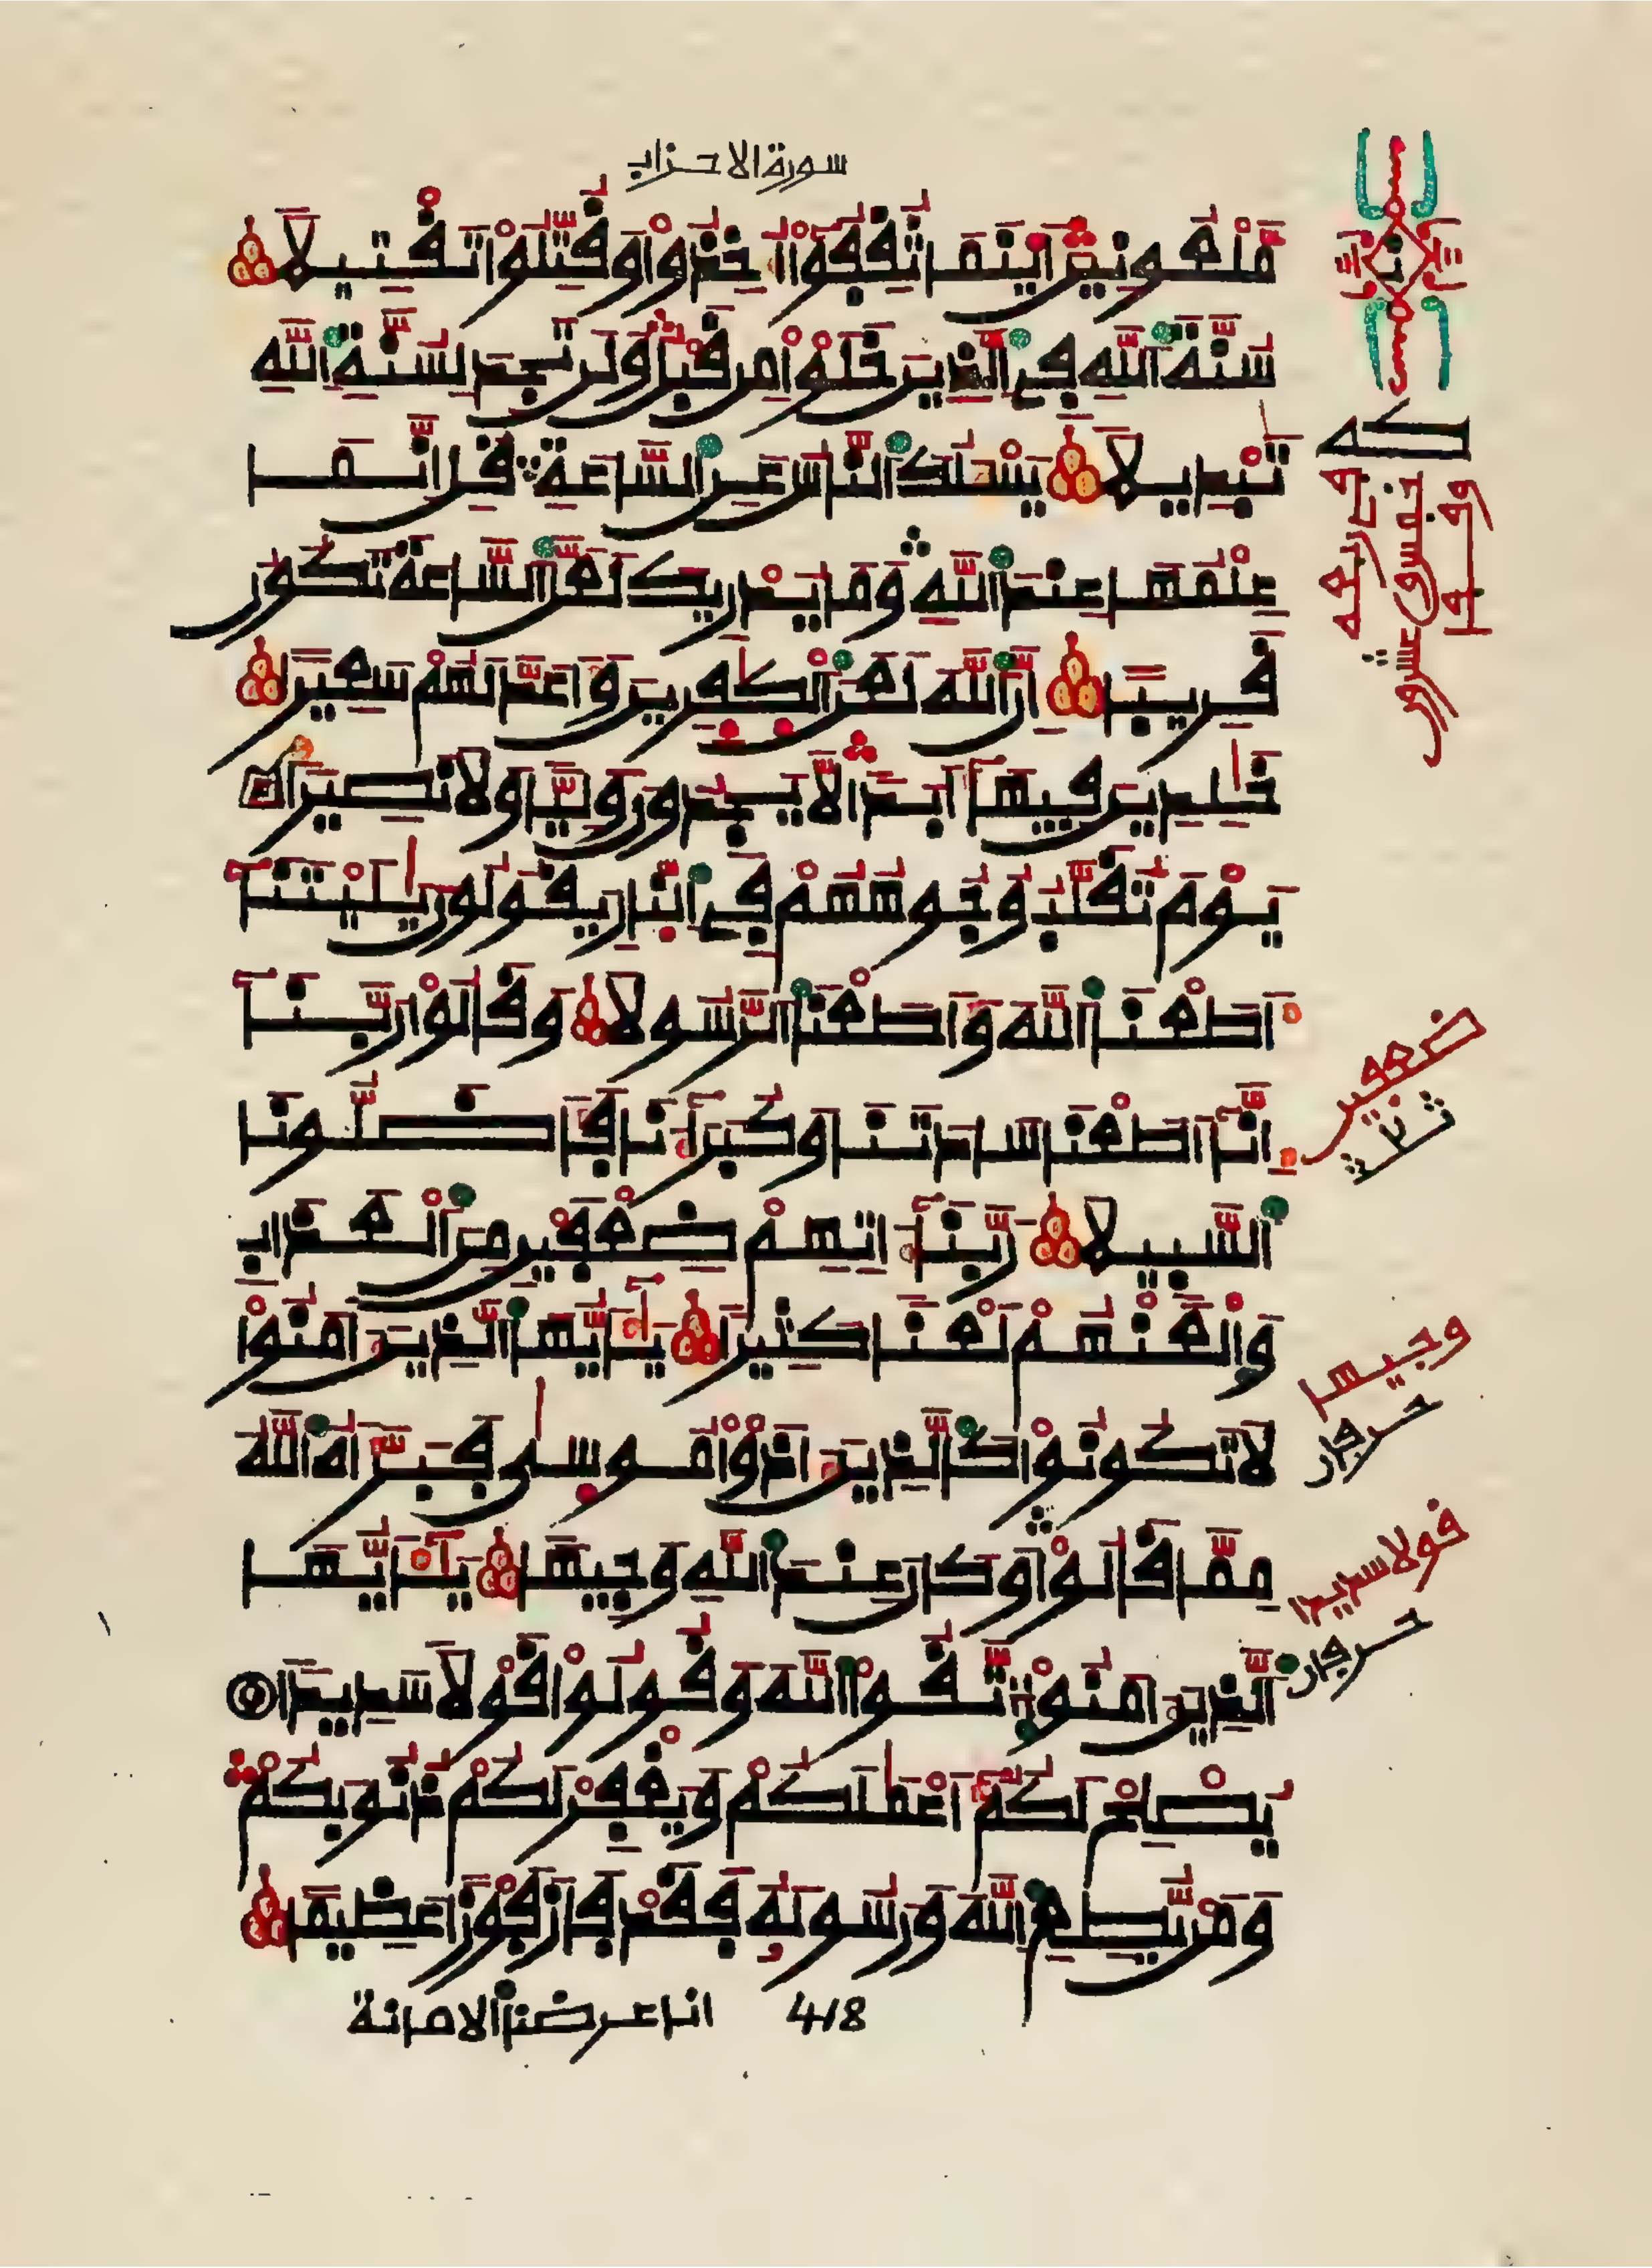 سورة الاحزاب
مَّلْعُونِينَ أَيْنَمَا ثُقِفُوٓاْ أُخِذُواْ وَقُتِّلُواْ تَقْتِيلاً
سُنَّةَ اَللَّهِ فِي اِلذِينَ خَلَوْاْ مِن قَبْلُ وَلَن تَجِدَ لِسُنَّةِ اِللَّهِ
تَبْدِيلاً يَسْـَٔلُكَ اَلنَّاسُ عَنِ اِلسَّاعَةِ قُلِ انَّمَا
عِلْمُهَا عِندَ اَللَّهِ وَمَا يُدْرِيكَ لَعَلَّ اَلسَّاعَةَ تَكُونُ
قَرِيباً اِنَّ اَللَّهَ لَعَنَ اَلْكٰفِرِينَ وَأَعَدَّ لَهُمْ سَعِيراً
خٰلِدِينَ فِيهَآ أَبَداً لاَّ يَجِدُونَ وَلِيّاً وَلاَ نَصِيراً
يَوْمَ تُقَلَّبُ وُجُوهُهُمْ فِي اِلنَّارِ يَقُولُونَ يٰلَيْتَنَآ
أَطَعْنَا اَللَّهَ وَأَطَعْنَا اَلرَّسُولاَ وَقَالُواْ رَبَّنَآ
إِنَّآ أَطَعْنَا سَادَتَنَا وَكُبَرَآءَنَا فَأَضَلُّونَا
اَلسَّبِيلاَ رَبَّنَآ ءَاتِهِمْ ضِعْفَيْنِ مِنَ اَلْعَذَابِ
وَالْعَنْهُمْ لَعْناً كَثِيراً يَٰٓأَيُّهَا اَلذِينَ ءَامَنُواْ
لاَ تَكُونُواْ كَالذِينَ ءَاذَوْاْ مُوسَىٰ فَبَرَّأَهُ اَللَّهُ
مِمَّا قَالُواْ وَكَانَ عِندَ اَللَّهِ وَجِيهاً يَٰٓأَيُّهَا
اَلذِينَ ءَامَنُواْ اتَّقُواْ اُللَّهَ وَقُولُواْ قَوْلاً سَدِيداً
يُصْلِحْ لَكُمُۥٓ أَعْمَٰلَكُمْ وَيَغْفِرْ لَكُمْ ذُنُوبَكُمْ
وَمَنْ يُّطِعِ اِللَّهَ وَرَسُولَهُۥ فَقَدْ فَازَ فَوْزاً عَظِيماً
418 انا عرضنا الامانة
ضعفين
ثلاثة
وجيها
حرفان
قولا سديدا
حرفان